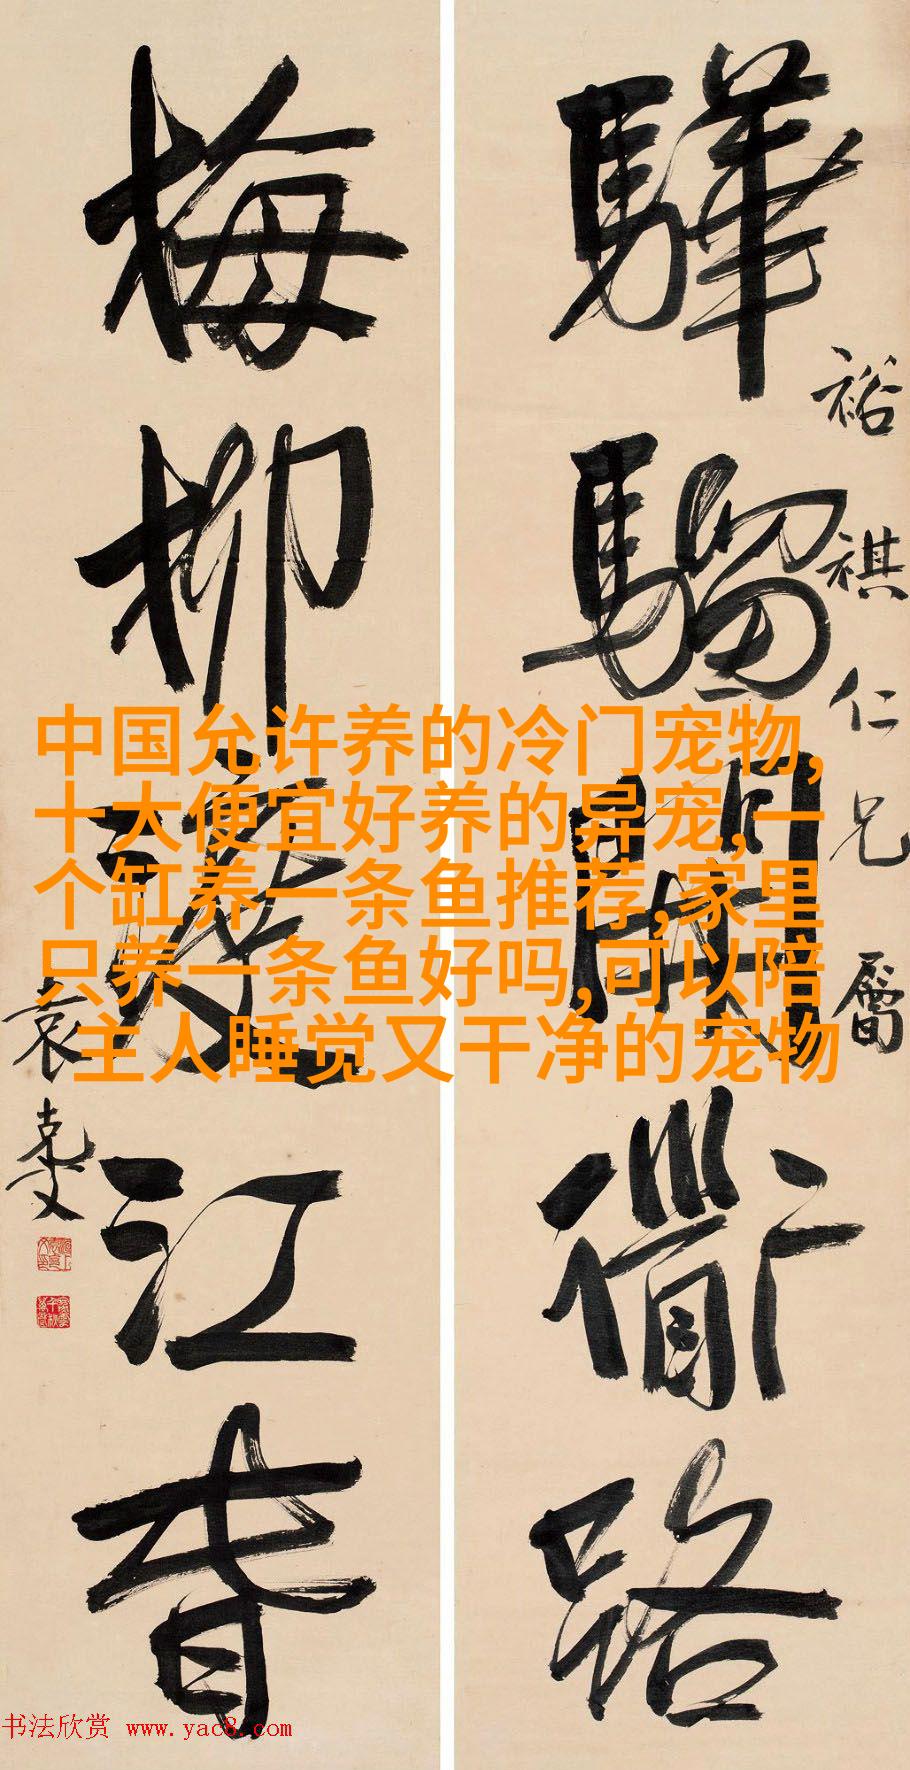 驊騮開衜路
裕祺仁兄屬
梅柳渡江春
袁克文
中国允许养的冷门宠物,
十大便宜好养的异宠,一
个缸养一条鱼推荐,家里
只养一条鱼好吗,可以陪
主人睡觉又干净的宠物
书法欣赏 www.yac8.com